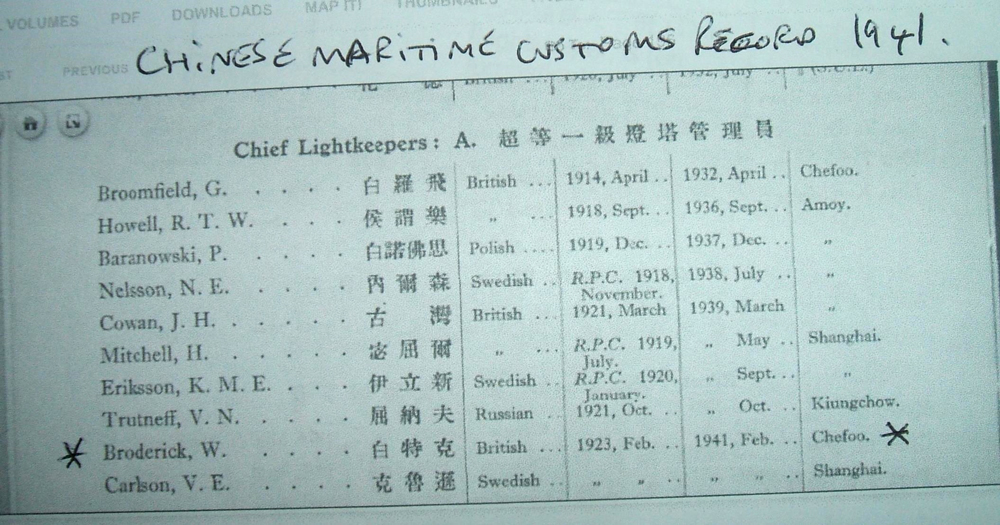 VOLUMES PDF DOWNLOADS MAP IT! THUMBNAILS
PREVIOUS CHINESE MARITIME CUSTOMS RECORD 1941.
British 1926, July .. 1932, July ..
Chief Lightkeepers: A. 超等一級燈塔管理員
Broomfield, G. . . . . 白羅飛 British ... 1914, April .. 1932, April .. Chefoo.
Howell, R. T. W. . . . 侯謂樂 „ ... 1918, Sept. .. 1936, Sept. .. Amoy.
Baranowski, P. . . . . 白諾佛思 Polish .... 1919, Dec. .. 1937, Dec. ... „
Nelsson, N. E. . . . . 芮爾森 Swedish ... R.P.C. 1918, 1938, July .. „
November.
Cowan, J. H. . . . . . 古灣 British ... 1921, March 1939, March „
Mitchell, H. . . . . . 宓屈爾 „ ... R.P.C. 1919, „ May .. Shanghai.
July.
Eriksson, K. M. E. . . . 伊立新 Swedish .. R.P.C. 1920, „ Sept. .. „
January.
Trutneff, V. N. . . . . 屈納夫 Russian ... 1921, Oct. .. „ Oct. .. Kiungchow.
Broderick, W. . . . . 白特克 British ... 1923, Feb. .. 1941, Feb. ... Chefoo.
Carlson, V. E. . . . . 克魯遜 Swedish .. „ „ .. „ „ .. Shanghai.